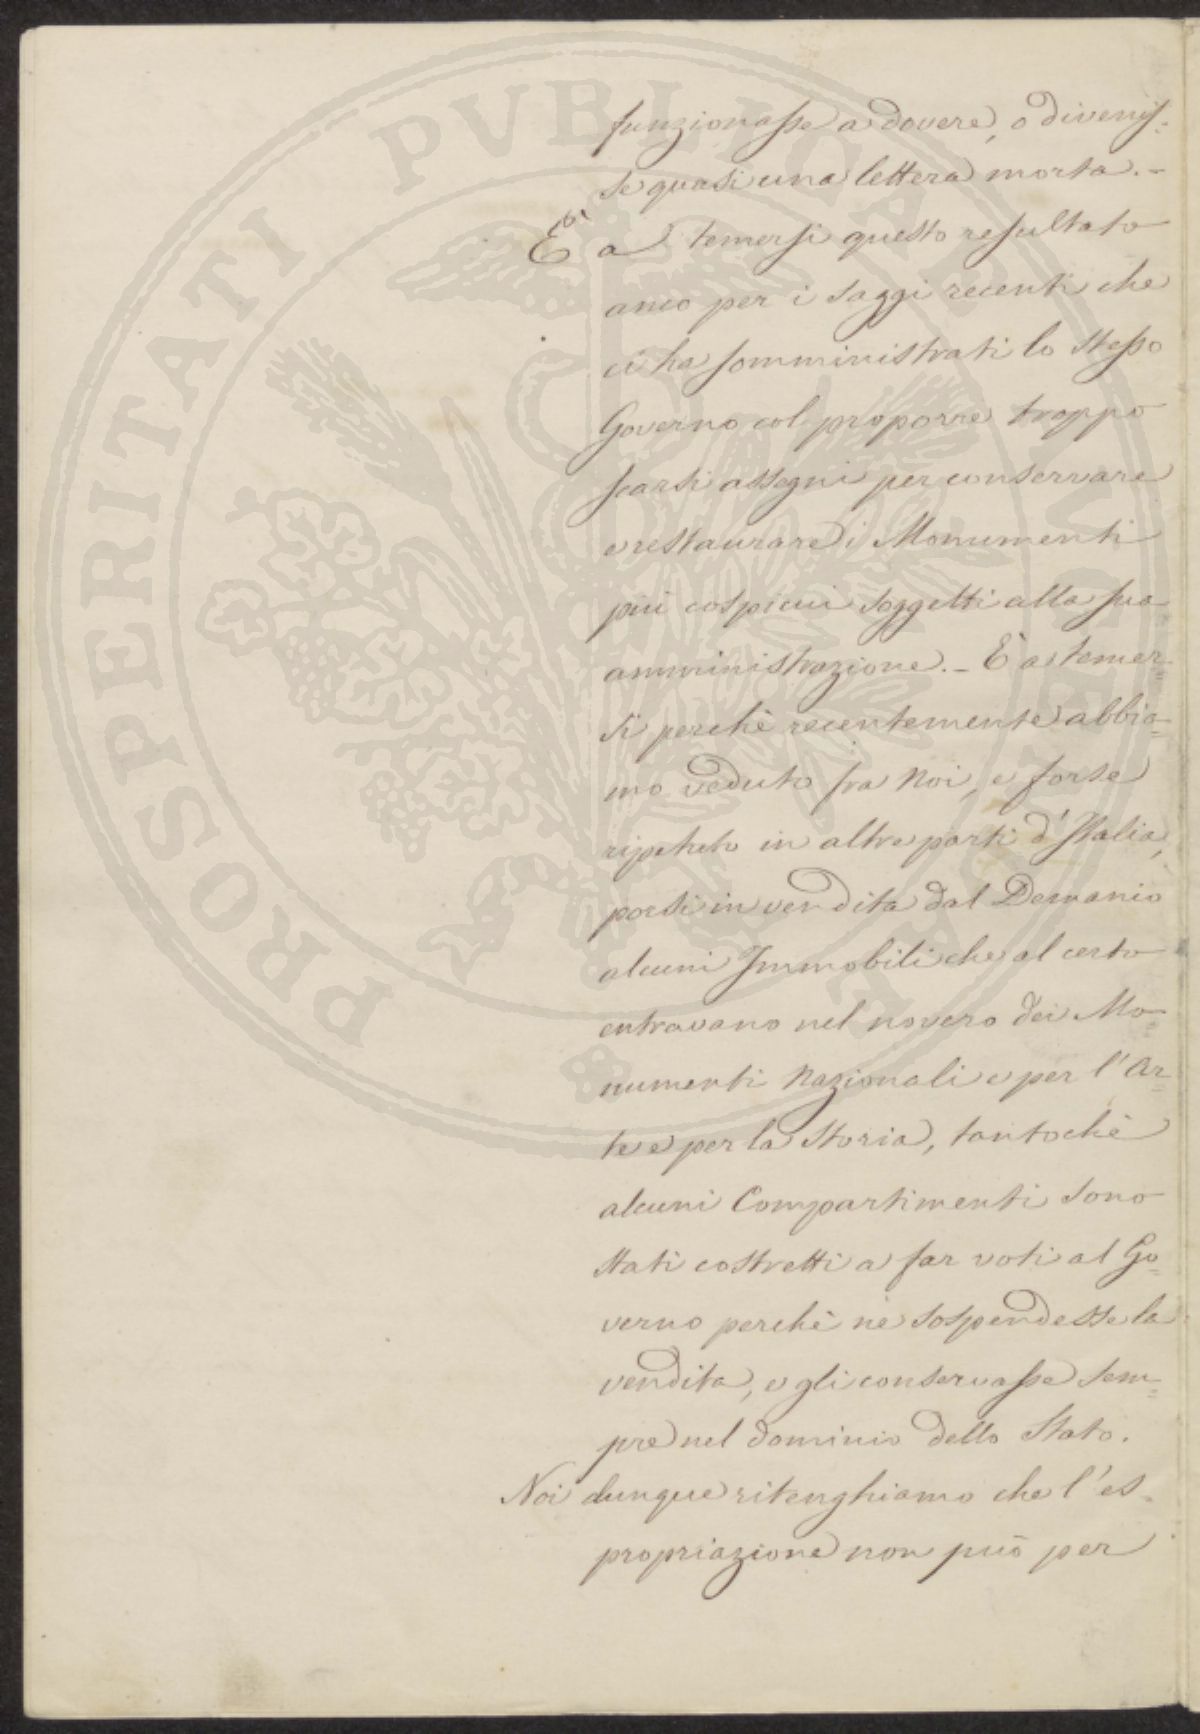 funzionasse a dovere, o divenis=
se quasi una lettera morta. -
È a temersi questo resultato
anco per i saggi recenti che
ci ha somministrati lo stesso
Governo col proporre troppo
scarsi assegni per conservare
e restaurare i Monumenti
più cospicui soggetti alla sua
amministrazione. - È a temer=
si perchè recentemente abbia=
mo veduto fra noi, e forse
ripetuto in altre parti d'Italia,
porsi in vendita dal Demanio
alcuni Immobili che al certo
entravano nel novero dei Mo=
numenti Nazionali e per l'Ar=
te e per la Storia, tantochè
alcuni Compartimenti sono
stati costretti a far voti al Go=
verno perchè ne sospendesse la
vendita, e gli conservasse sem=
pre nel dominio dello Stato.
Noi dunque ritenghiamo che l'es=
propriazione non può per
PROSPERITATI PVBLICAE AVGENDAE